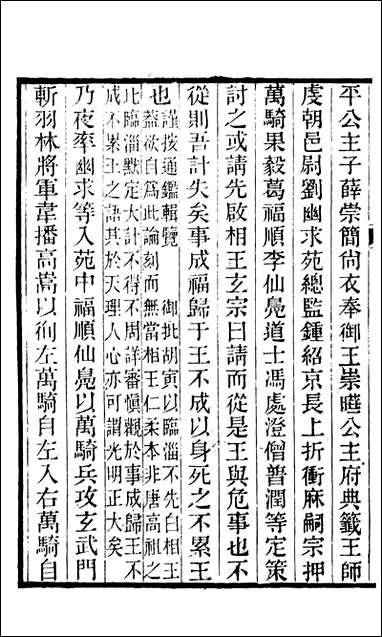 平公主子薛崇簡尙衣奉御王崇曄公主府典籤王師
虔朝邑尉劉幽求苑總監鍾紹京長上折衝麻嗣宗押
萬騎果毅葛福順李仙鳧道士馮處澄僧普潤等定策
討之或請先啟相王玄宗曰請而從是王與危事也不
從則吾計失矣事成福歸于王不成以身死之不累王
也
謹按通鑑輯覽　御批胡寅以臨淄不先白相王
蓋欲自爲此論刻而無當相王仁柔本非唐高祖之
此臨淄默定大計不得不周詳審愼觀於事成歸王不
成不累王之語其於天理人心亦可謂光明正大矣
乃夜率幽求等入苑中福順仙鳧以萬騎兵攻玄武門
斬羽林將軍韋播高嵩以徇左萬騎自左入右萬騎自